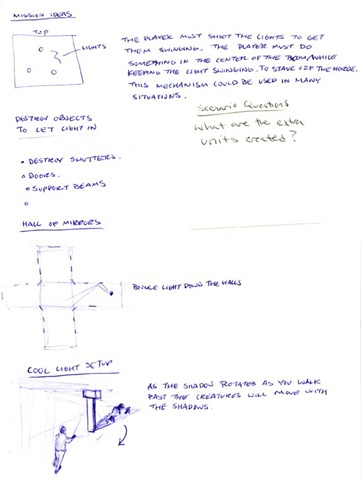 MISSION IDEAS
TOP
LIGHTS
THE PLAYER MUST SHOOT THE LIGHTS TO GET
THEM SWINGING. THE PLAYER MUST DO
SOMETHING IN THE CENTER OF THE ROOM WHILE
KEEPING THE LIGHT SWINGING. TO STAVE OFF THE HORDE.
THIS MECHANISM COULD BE USED IN MANY
SITUATIONS.
Scenario Questions
What are the extra
units created?
DESTROY OBJECTS
TO LET LIGHT IN
• DESTROY SHUTTERS.
• DOORS.
• SUPPORT BEAMS
HALL OF MIRRORS
BOUNCE LIGHT DOWN THE HALLS
COOL LIGHT SETUP
AS THE SHADOW ROTATES AS YOU WALK
PAST THE CREATURES WILL MOVE WITH
THE SHADOWS.